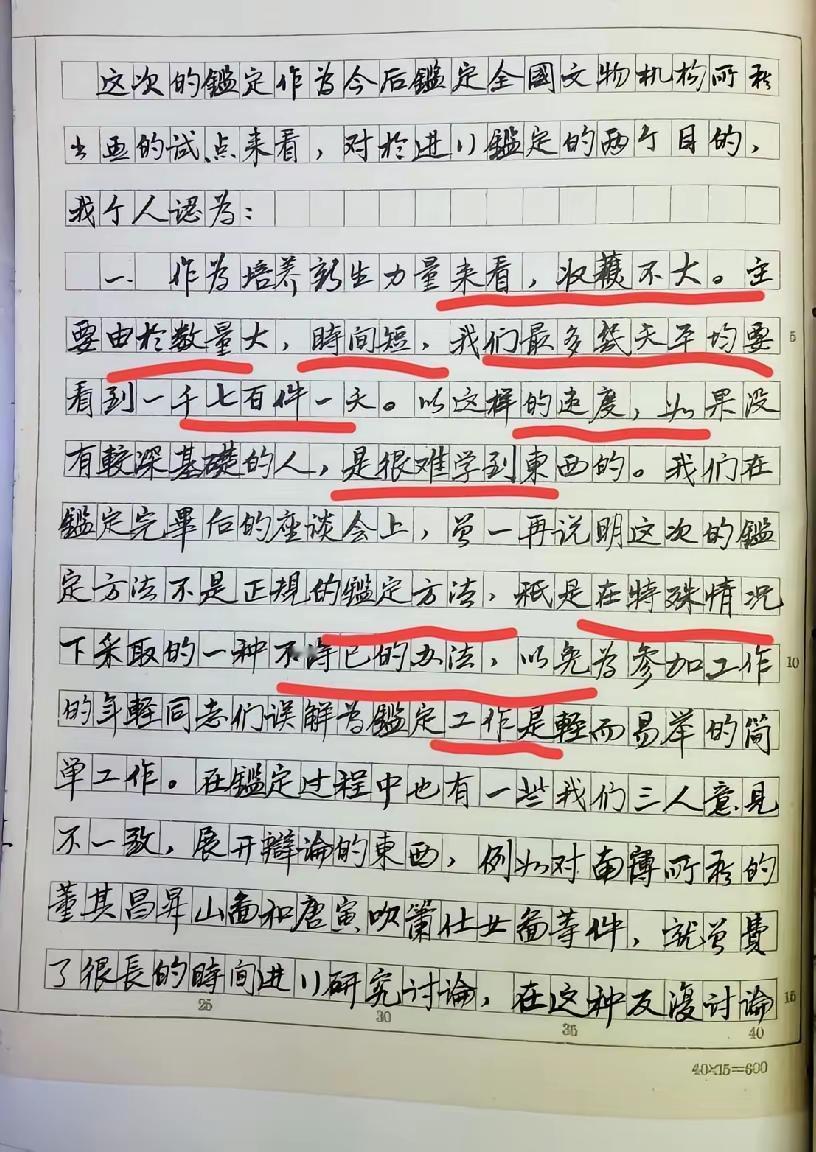 这次的鑑定作为今后鑑定全國文物机构所藏
书画的试点来看，对於进行鑑定的两个目的，
我个人認为：
一、作为培养新生力量来看，收穫不大。主
要由於数量大，時间短，我们最多几天平均要
看到一千七百件一天。以这样的速度，如果没
有較深基礎的人，是很难学到東西的。我们在
鑑定完畢后的座谈会上，曾一再说明这次的鑑
定方法不是正規的鑑定方法，祇是在特殊情况
下采取的一种不得已的办法，以免为参加工作
的年輕同志们误解为鑑定工作是輕而易举的简
单工作。在鑑定过程中也有一些我们三人意見
不一致，展开辯論的東西，例如对南博所藏的
董其昌昇山畵和唐寅吹箫仕女畵等件，就曾費
了很長的時间进行研究讨論，在这种反復讨論
5
10
15
25
30
35
40
40×15=600